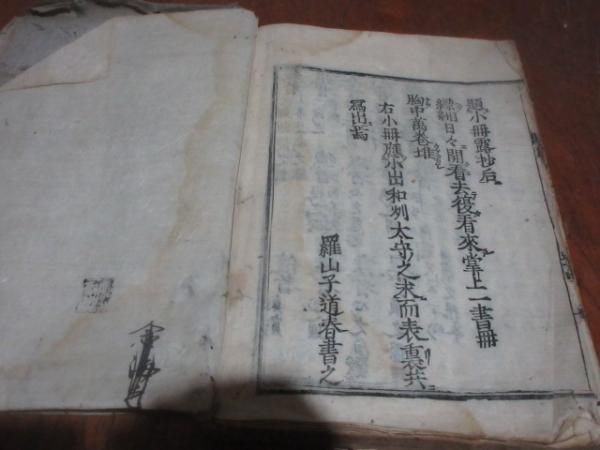 題小冊露抄后
緗細日々閒看去復看來掌上一書冊
胸中萬卷堆
右小冊應小出和刕太守之求而表裏共
寫出焉
羅山子道春書之